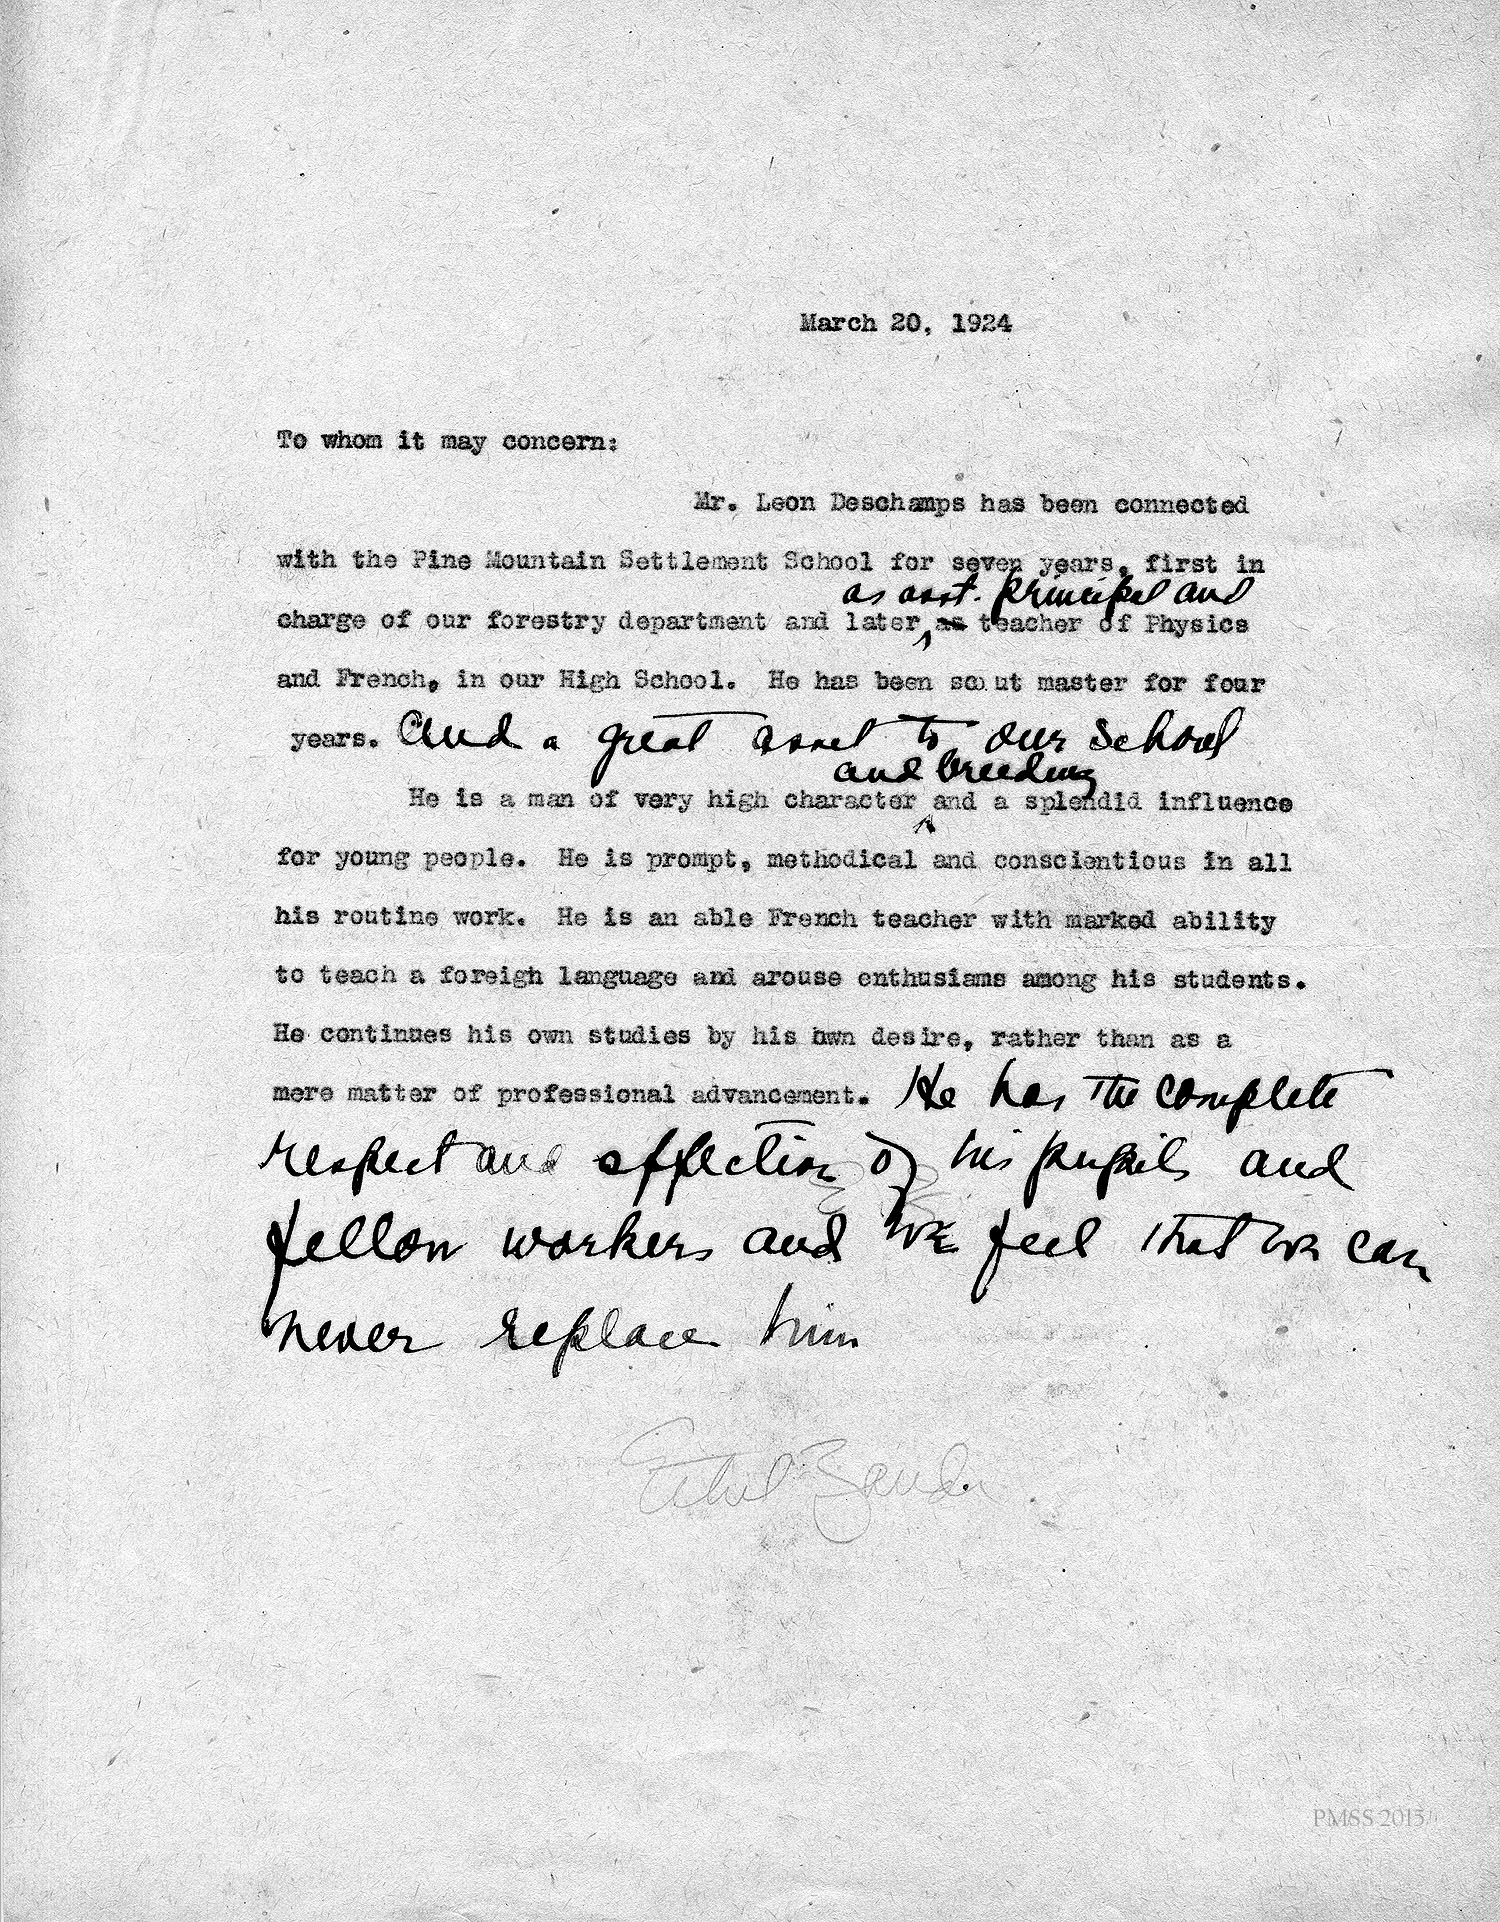 March 20, 1924
To whom it may concern:
Mr. Leon Deschamps has been connected
with the Pine Mountain Settlement School for seven years, first in
as asst. principal and
charge of our forestry department and later as teacher of Physics
and French, in our High School. He has been scout master for four
years. and a great asset to our School
and breeding
He is a man of very high character and a splendid influence
for young people. He is prompt, methodical and conscientious in all
his routine work. He is an able French teacher with marked ability
to teach a foreigh language and arouse enthusiams among his students.
He continues his own studies by his own desire, rather than as a
mere matter of professional advancement. He has the complete
respect and affection of his pupils and
fellow workers and we feel that we can
never replace him
Ethel
PMSS 2015